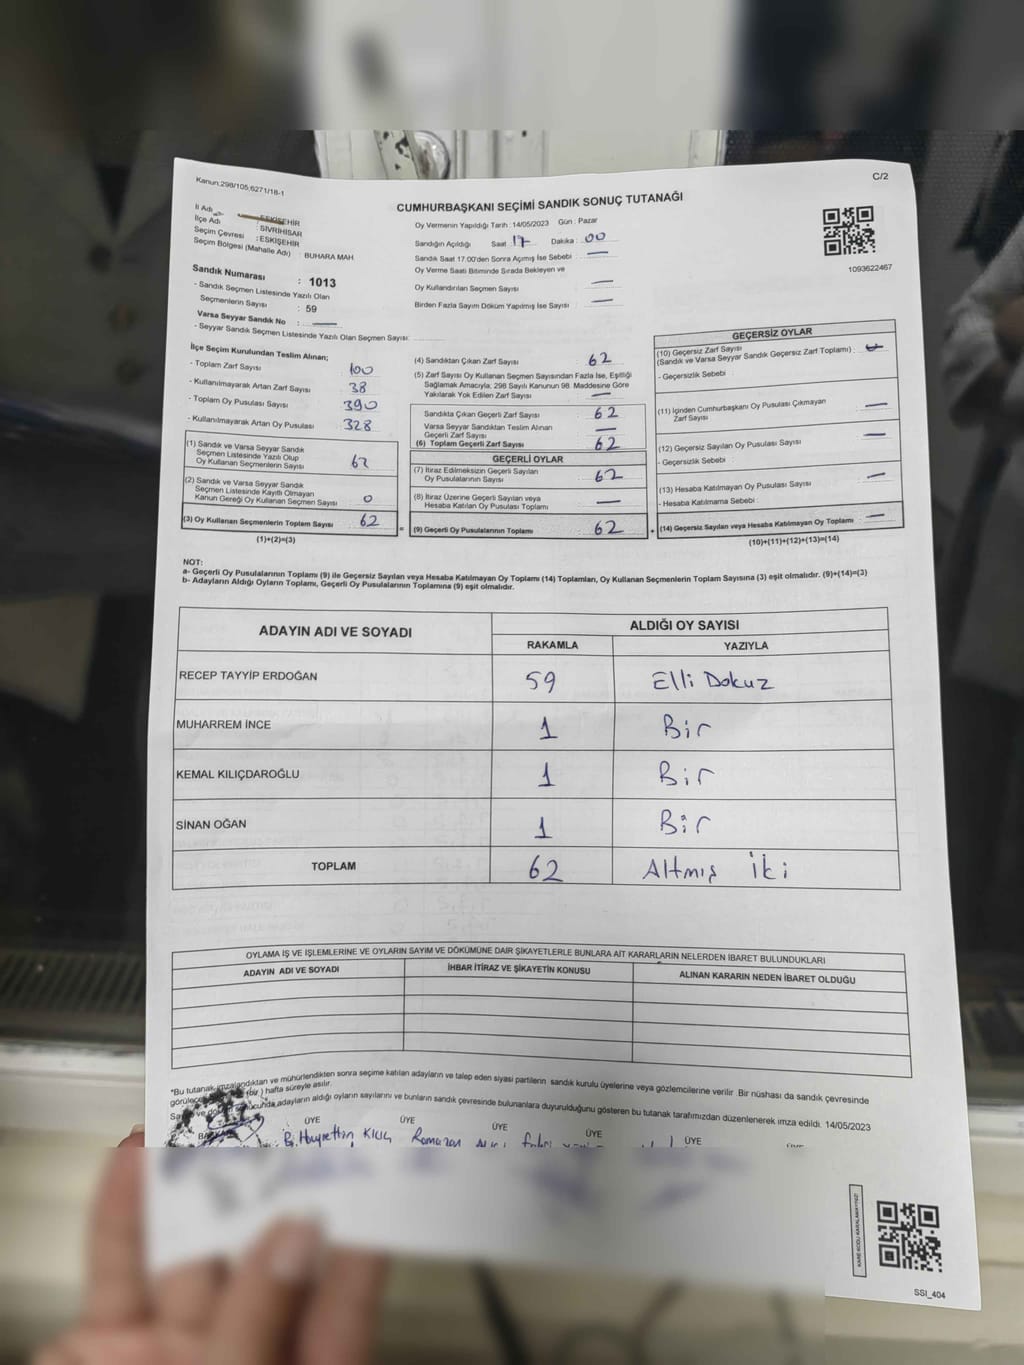 Kanun.298/105,6271/18-1
C/2
CUMHURBAŞKANI SEÇİMİ SANDIK SONUÇ TUTANAĞI
İl Adı : ESKİŞEHİR
İlçe Adı : SİVRİHİSAR
Seçim Çevresi : ESKİŞEHİR
Seçim Bölgesi (Mahalle Adı) : BUHARA MAH
Oy Vermenin Yapıldığı Tarih : 14/05/2023 Gün : Pazar
Sandığın Açıldığı Saat : 17 Dakika : 00
Sandık Saat 17.00'den Sonra Açımış İse Sebebi : —
Oy Verme Saati Bitiminde Sırada Bekleyen ve
Oy Kullandırılan Seçmen Sayısı —
Birden Fazla Sayım Döküm Yapılmış İse Sayısı —
1093622467
Sandık Numarası : 1013
- Sandık Seçmen Listesinde Yazılı Olan
Seçmenlerin Sayısı : 59
Varsa Seyyar Sandık No : —
- Seyyar Sandık Seçmen Listesinde Yazılı Olan Seçmen Sayısı:
İlçe Seçim Kurulundan Teslim Alınan;
- Toplam Zarf Sayısı 100
- Kullanılmayarak Artan Zarf Sayısı 38
- Toplam Oy Pusulası Sayısı 390
- Kullanılmayarak Artan Oy Pusulası 328
(1) Sandık ve Varsa Seyyar Sandık
Seçmen Listesinde Yazılı Olup
Oy Kullanan Seçmenlerin Sayısı 62
(2) Sandık ve Varsa Seyyar Sandık
Seçmen Listesinde Kayıtlı Olmayan
Kanun Gereği Oy Kullanan Seçmen Sayısı 0
(3) Oy Kullanan Seçmenlerin Toplam Sayısı 62
(1)+(2)=(3)
(4) Sandıktan Çıkan Zarf Sayısı 62
(5) Zarf Sayısı Oy Kullanan Seçmen Sayısından Fazla İse, Eşitliği
Sağlamak Amacıyla; 298 Sayılı Kanunun 98. Maddesine Göre
Yakılarak Yok Edilen Zarf Sayısı —
Sandıkta Çıkan Geçerli Zarf Sayısı 62
Varsa Seyyar Sandıktan Teslim Alınan
Geçerli Zarf Sayısı —
(6) Toplam Geçerli Zarf Sayısı 62
GEÇERLİ OYLAR
(7) İtiraz Edilmeksizin Geçerli Sayılan
Oy Pusulalarının Sayısı 62
(8) İtiraz Üzerine Geçerli Sayılan veya
Hesaba Katılan Oy Pusulası Toplamı —
= (9) Geçerli Oy Pusulalarının Toplamı 62
GEÇERSİZ OYLAR
(10) Geçersiz Zarf Sayısı
(Sandık ve Varsa Seyyar Sandık Geçersiz Zarf Toplamı) :
- Geçersizlik Sebebi :
(11) İçinden Cumhurbaşkanı Oy Pusulası Çıkmayan
Zarf Sayısı —
(12) Geçersiz Sayılan Oy Pusulası Sayısı —
- Geçersizlik Sebebi :
(13) Hesaba Katılmayan Oy Pusulası Sayısı —
- Hesaba Katılmama Sebebi :
+ (14) Geçersiz Sayılan veya Hesaba Katılmayan Oy Toplamı —
(10)+(11)+(12)+(13)=(14)
NOT:
a- Geçerli Oy Pusulalarının Toplamı (9) ile Geçersiz Sayılan veya Hesaba Katılmayan Oy Toplamı (14) Toplamları, Oy Kullanan Seçmenlerin Toplam Sayısına (3) eşit olmalıdır. (9)+(14)=(3)
b- Adayların Aldığı Oyların Toplamı, Geçerli Oy Pusulalarının Toplamına (9) eşit olmalıdır.
ADAYIN ADI VE SOYADI ALDIĞI OY SAYISI
RAKAMLA YAZIYLA
RECEP TAYYİP ERDOĞAN 59 Elli Dokuz
MUHARREM İNCE 1 Bir
KEMAL KILIÇDAROĞLU 1 Bir
SİNAN OĞAN 1 Bir
TOPLAM 62 Altmış İki
OYLAMA İŞ VE İŞLEMLERİNE VE OYLARIN SAYIM VE DÖKÜMÜNE DAİR ŞİKAYETLERLE BUNLARA AİT KARARLARIN NELERDEN İBARET BULUNDUKLARI
ADAYIN ADI VE SOYADI İHBAR İTİRAZ VE ŞİKAYETİN KONUSU ALINAN KARARIN NEDEN İBARET OLDUĞU
*Bu tutanak imzalandıktan ve mühürlendikten sonra seçime katılan adayların ve talep eden siyasi partilerin sandık kurulu üyelerine veya gözlemcilerine verilir. Bir nüshası da sandık çevresinde
(bir) hafta süreyle asılır.
adayların aldığı oyların sayılarını ve bunların sandık çevresinde bulunanlara duyurulduğunu gösteren bu tutanak tarafımızdan düzenlenerek imza edildi. 14/05/2023
ÜYE ÜYE ÜYE ÜYE ÜYE
B. Hayrettin KILIÇ Ramazan
KARE KODU KARALAMAYINIZ!
SSI_404